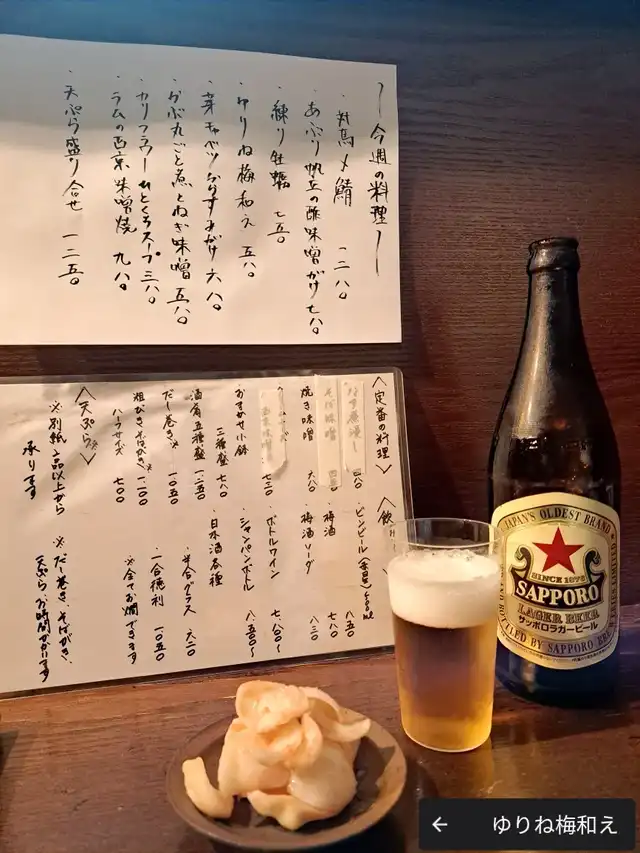 〜今週の料理〜
・対馬〆鯖 一二八〇
・あぶり帆立の酢味噌がけ 七八〇
・練り牡蠣 七五〇
・ゆりね梅和え 五八〇
・芽キャベツからすみがけ 六八〇
・かぶ丸ごと煮とねぎ味噌 五八〇
・カリフラワーひとくちスープ 三八〇
・ラムの西京味噌焼 九八〇
・天ぷら盛り合せ 一二五〇
〈定番の料理〉
焼き味噌 六八〇
おまかせ小鉢
三種盛 七八〇
酒肴五種盛 一二五〇
だし巻き※ 一〇五〇
粗びきそばがき※ 一二〇〇
ハーフサイズ 七〇〇
〈天ぷら※〉
※別紙2品以上から
承ります
〈飲
ビンビール(赤星)500ml 八五〇
梅酒 七八〇
梅酒ソーダ 八二〇
ボトルワイン 七八〇〇〜
シャンパンボトル 八五〇〇〜
日本酒各種
半合グラス 六二〇
一合徳利 一〇五〇
※全てお燗できます
※だし巻き、そばがき、
天ぷら、お時間かかります
JAPAN'S OLDEST BRAND
SINCE 1876
SAPPORO
LAGER BEER
サッポロラガービール
BOTTLED BY SAPPORO
← ゆりね梅和え